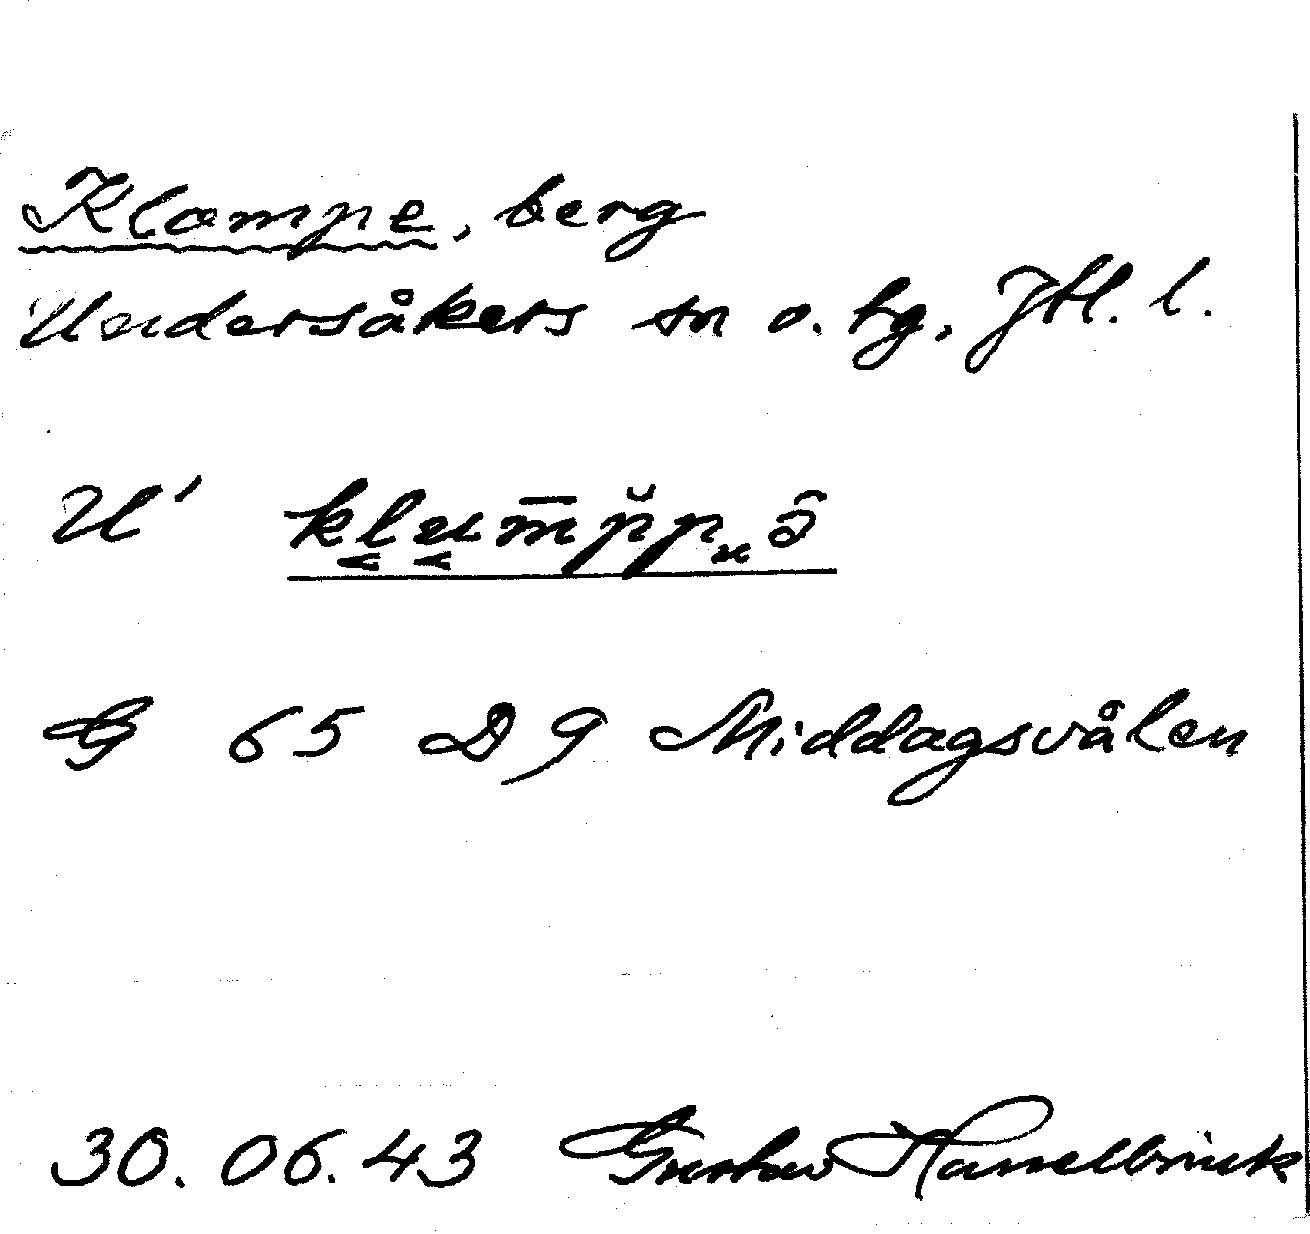 Klampe, berg
Undersåkers sn o. hg, Jtl. l.
U'
G 65 D 9 Middagsvålen
30. 06. 43 Gustav Hasselbrink